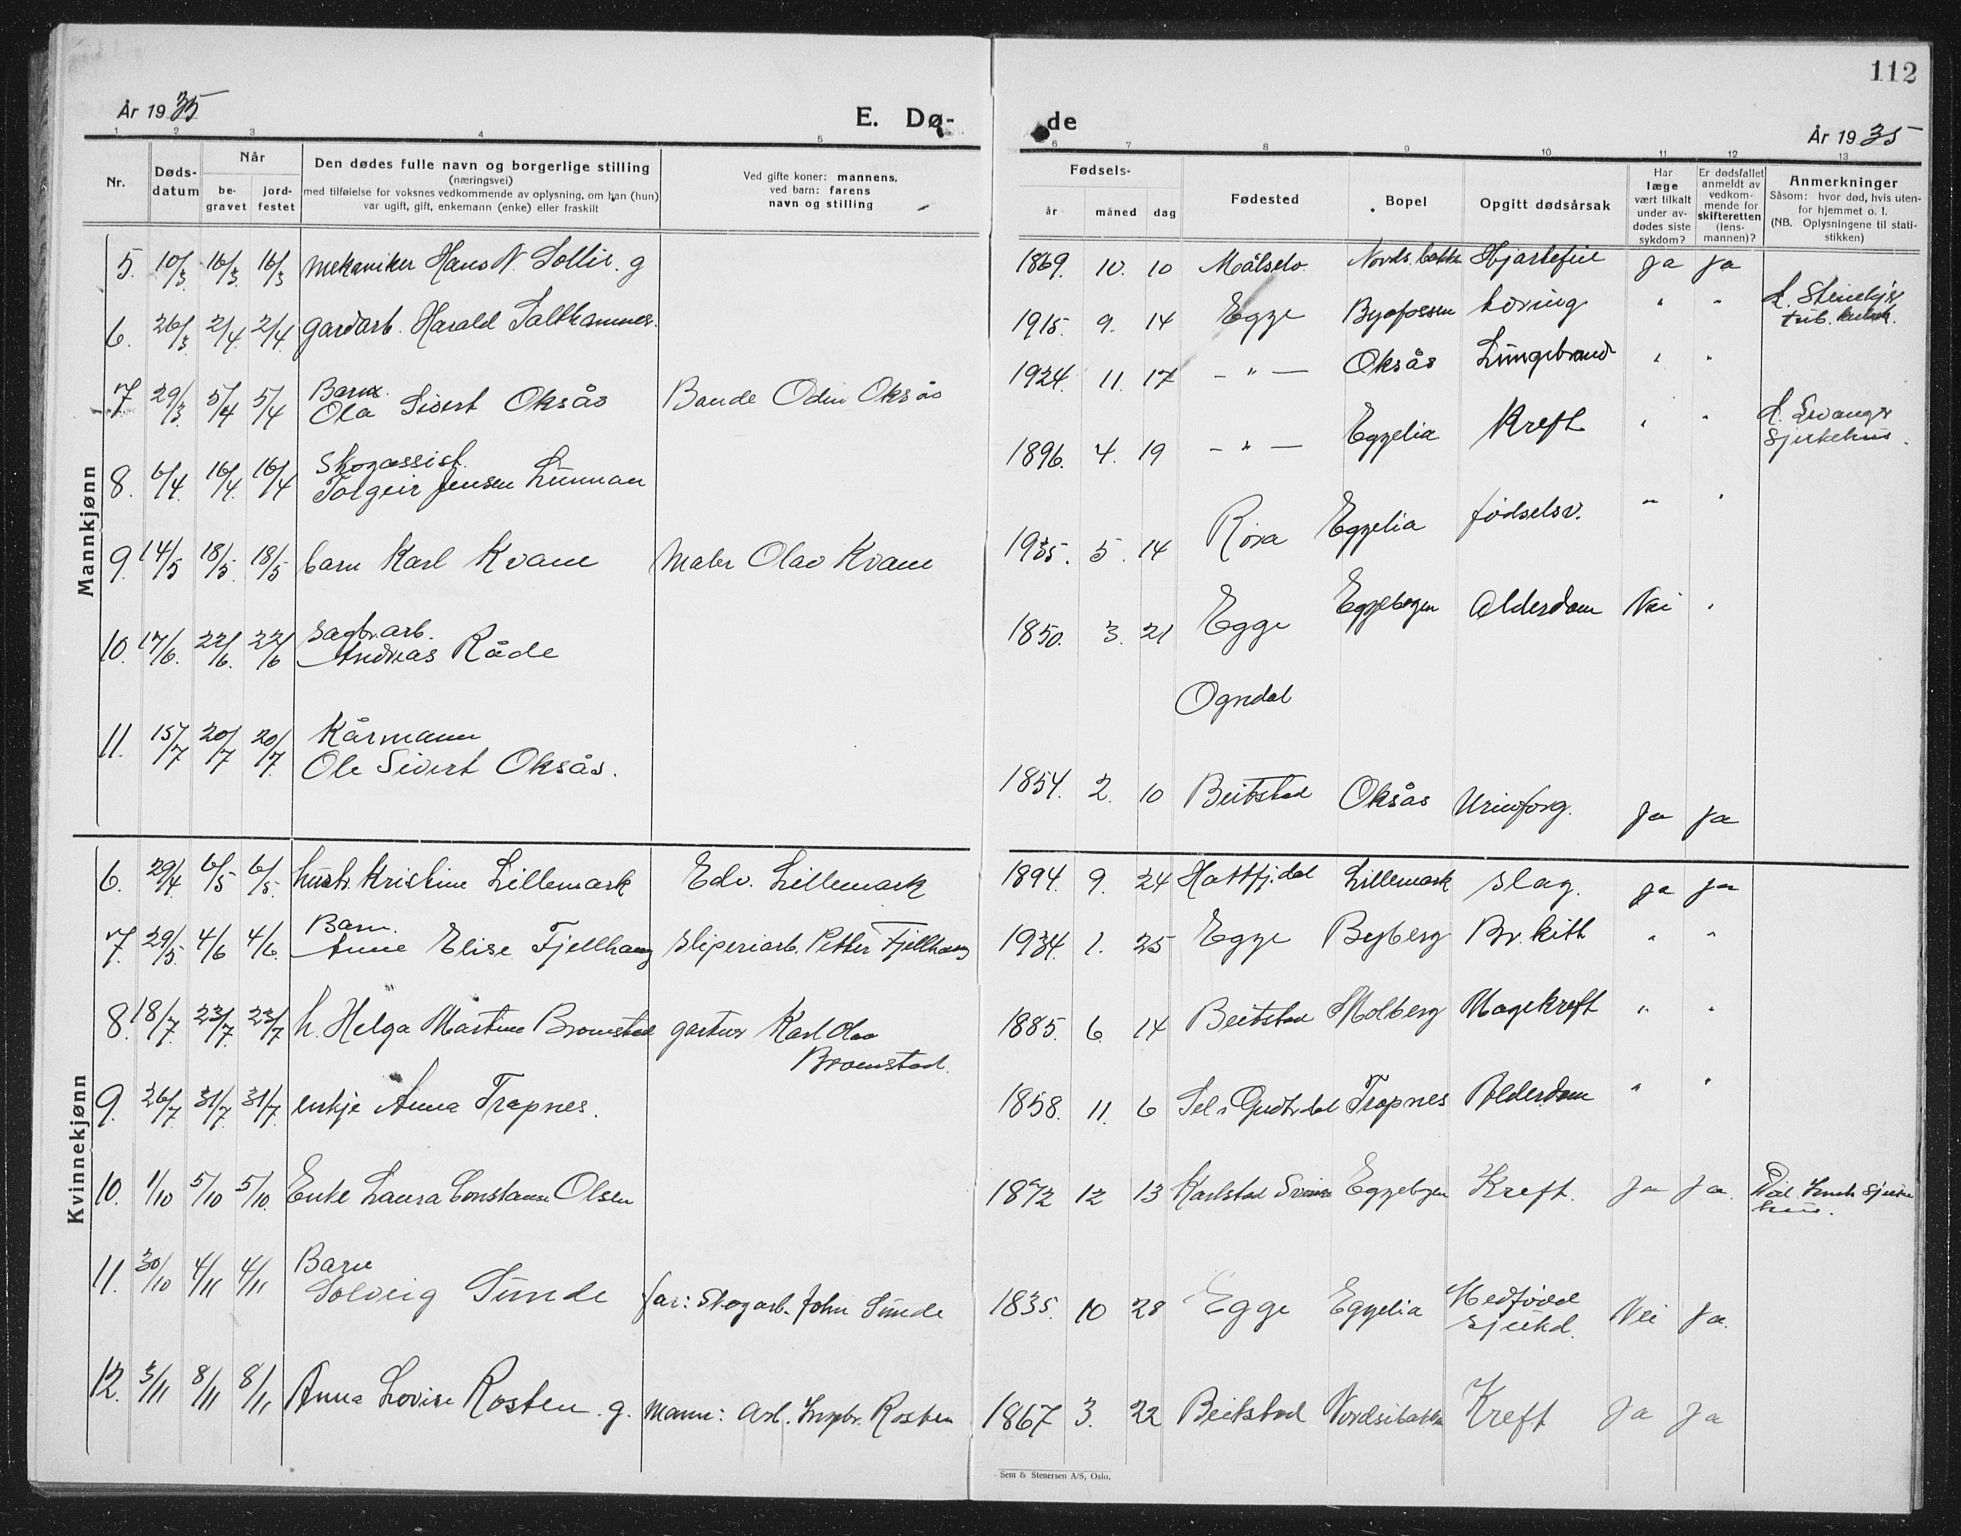 112
År 1935
E. Dø-
de
År 1935
1 2 3 4 5 6 7 8 9 10 11 12 13
Nr.
Døds-
datum
Når
be-
gravet
jord-
festet
Den dødes fulle navn og borgerlige stilling
(næringsvei)
med tilføielse for voksnes vedkommende av oplysning, om han (hun)
var ugift, gift, enkemann (enke) eller fraskilt
Ved gifte koner: mannens,
ved barn: farens
navn og stilling
Fødsels-
år måned dag
Fødested
Bopel
Opgitt dødsårsak
Har
læge
vært tilkalt
under av-
dødes siste
sykdom?
Er dødsfallet
anmeldt av
vedkom-
mende for
skifteretten
(lens-
mannen)?
Anmerkninger
Såsom: hvor død, hvis uten-
for hjemmet o. l.
(NB. Oplysningene til stati-
stikken)
Mannkjønn
5. 10/3 16/3 16/3 Mekaniker Hans N. Sollie. g 1869. 10. 10 Målselv Nords.bakk Hjartefeil Ja Ja
6. 26/3 2/4 2/4 gardarb. Harald Salthammer. 1915. 9. 14 Egge Byafossen tæring " " d. Steinkjer
tub. heim.
7 29/3 5/4 5/4 Barn
Ola Sivert Oksås Bonde Odin Oksås 1924. 11. 17 - " - Oksås Lungebrand " "
8. 6/4 16/4 16/4 Skogassist.
Tolgeir Jensen Lunnan 1896. 4. 19 - " - Eggelia Kreft " " d. Levanger
Sjukehus.
9. 14/5 18/5 18/5 barn Karl Kvam Maler Olav Kvam 1935. 5. 14 Røra Eggelia fødselsv. " "
10. 17/6. 22/6. 22/6 Sagbr.arb.
Andreas Råde 1850. 3. 21 Egge Eggebogen Alderdom Nei "
Ogndal
11. 15/7 20/7 20/7. Kårmann
Ole Sivert Oksås. 1854. 2. 10 Beitstad Oksås Urinforg. Ja Ja
Kvinnekjønn
6. 29/4 6/5 6/5. hustr. Kristine Lillemark Edv. Lillemark 1894. 9. 24 Hattfj.dal Lillemark slag. Ja Ja
7. 29/5. 4/6 4/6. Barn.
Anne Elise Fjellhaug Sliperiarb. Petter Fjellhaug 1934. 1. 25 Egge Byberg Br.kitt " "
8. 18/7. 23/7. 23/7 h. Helga Martine Bromstad gartner Karl Olav
Bromstad. 1885. 6. 14 Beitstad Molberg Magekreft " "
9. 26/7 31/7 31/7. enkje Anna Trapnes. 1858. 11. 6 Sel i Gudbr.dal Trapnes Alderdom " "
10. 1/10 5/10 5/10. Enke Laura Constanse Olsen 1872 12 13 Karlstad Eggebogen Kreft. Ja Ja. Sjuke
hus.
11. 30/10 4/11 4/11 Barn
Solveig Sunde far: Skogarb. John Sunde 1835. 10 28 Egge Eggelia Medfødd
sjukd. Nei Ja.
12. 3/11 8/11 8/11 Anna Lovise Rosten. g. Mann: Arb. Ingebr. Rosten 1867 3. 22 Beitstad Nordsibakken Kreft Ja Ja
Sem & Stenersen A/S, Oslo.